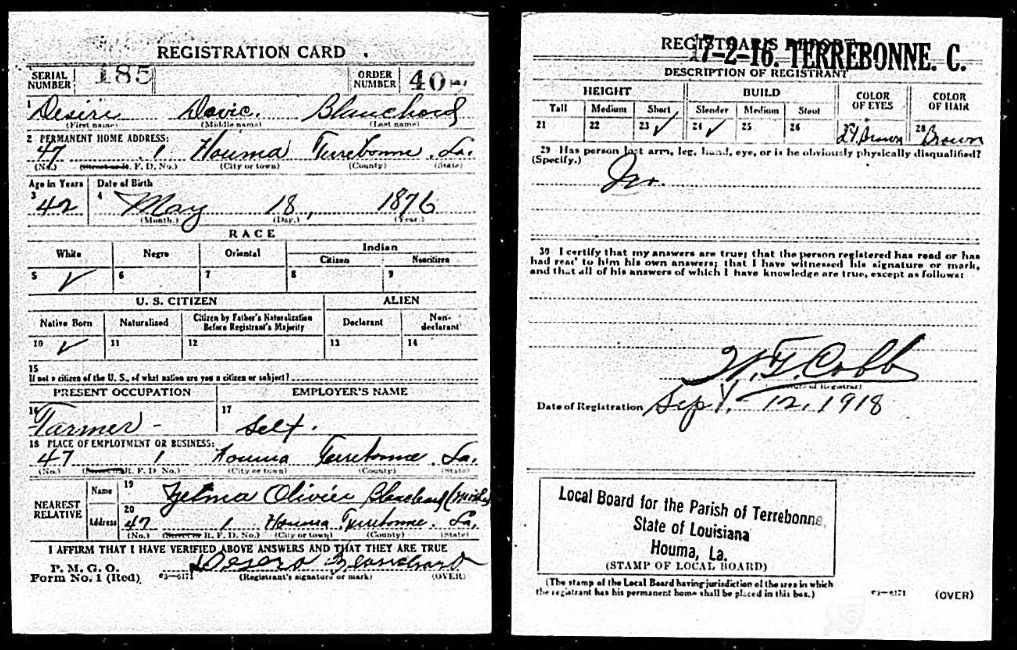 REGISTRATION CARD
SERIAL NUMBER 185 ORDER NUMBER 40
1 Desiri Davic. Blanchard
(First name) (Middle name) (Last name)
2 PERMANENT HOME ADDRESS:
47 1 Houma Terrebonne La.
(No.) (Street or R. F. D. No.) (City or town) (County) (State)
Age in Years Date of Birth
3 42 4 May 18, 1876
(Month.) (Day.) (Year.)
RACE
White Negro Oriental Indian
Citizen Noncitizen
5 ✓ 6 7 8 9
U. S. CITIZEN ALIEN
Native Born Naturalized Citizen by Father's Naturalization Before Registrant's Majority Declarant Non-declarant
10 ✓ 11 12 13 14
15
If not a citizen of the U. S., of what nation are you a citizen or subject?
PRESENT OCCUPATION EMPLOYER'S NAME
16 Farmer - 17 Self.
18 PLACE OF EMPLOYMENT OR BUSINESS:
47 1 Houma Terrebonne La.
(No.) (Street or R. F. D. No.) (City or town) (County) (State)
NEAREST RELATIVE Name 19 Olivier Blanchard
Address 20 47 1 Houma Terrebonne. La.
(No.) (Street or R. F. D. No.) (City or town) (County) (State)
I AFFIRM THAT I HAVE VERIFIED ABOVE ANSWERS AND THAT THEY ARE TRUE
P. M. G. O.
Form No. 1 (Red) 03—6171 Blanchard
(Registrant's signature or mark) (OVER)
REGISTRAR'S REPORT
17-2-16. TERREBONNE. C.
DESCRIPTION OF REGISTRANT
HEIGHT BUILD COLOR OF EYES COLOR OF HAIR
Tall Medium Short Slender Medium Stout
21 22 23 ✓ 24 ✓ 25 26 27 Brown 28 Brown
29 Has person lost arm, leg, hand, eye, or is he obviously physically disqualified?
(Specify.) No.
30 I certify that my answers are true; that the person registered has read or has
had read to him his own answers; that I have witnessed his signature or mark,
and that all of his answers of which I have knowledge are true, except as follows:
W. F. Cobb
(Signature of Registrar)
Date of Registration Sept. 12, 1918
Local Board for the Parish of Terrebonne,
State of Louisiana
Houma, La.
(STAMP OF LOCAL BOARD)
(The stamp of the Local Board having jurisdiction of the area in which
the registrant has his permanent home shall be placed in this box.)
03—6171 (OVER)